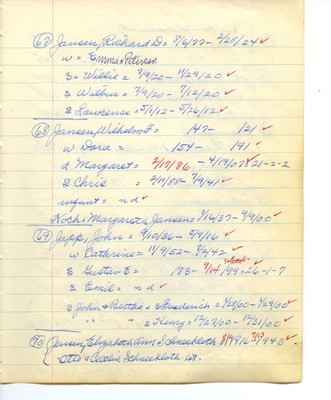 (67) Jansen, Richard D = 8/6/77 - 2/28/24 ✓
w = Emma Petersen
S = Willie = 7/9/20 - 11/29/20 ✓
S Wilbur = 7/9/20 - 7/12/20 ✓
S Lawrence = 5/1/12 - 5/26/12 ✓
(68) Jansen, Wilhelm F = 147 - 121 ✓
w Dora = 154 - 191 ✓
d Margaret = 2/17/86 - 4/19/07 ✓ 21-2-2
S Chris = 2/11/88 - 7/9/41 ✓
infant = n d ✓
Koch: Margareta Jansen = 7/16/37 - 9/9/00 ✓
(69) Japp, John = 9/10/36 - 5/9/16 ✓
w Cathrine = 11/9/52 - 7/2/42 ✓
S Gustav E = /73 - 9/14/99 = 26-1-7
S Emil = n d ✓
S John & Bertha = S Frederick = 1/28/00 - 1/29/00 ✓
" " " S Henry = 12/27/00 - 12/31/00 ✓
(70) Jensen, Elizabeth Ann Schneekloth 8/4/916 7/17/943 ✓
Otto & Cecelia Schneekloth lot.